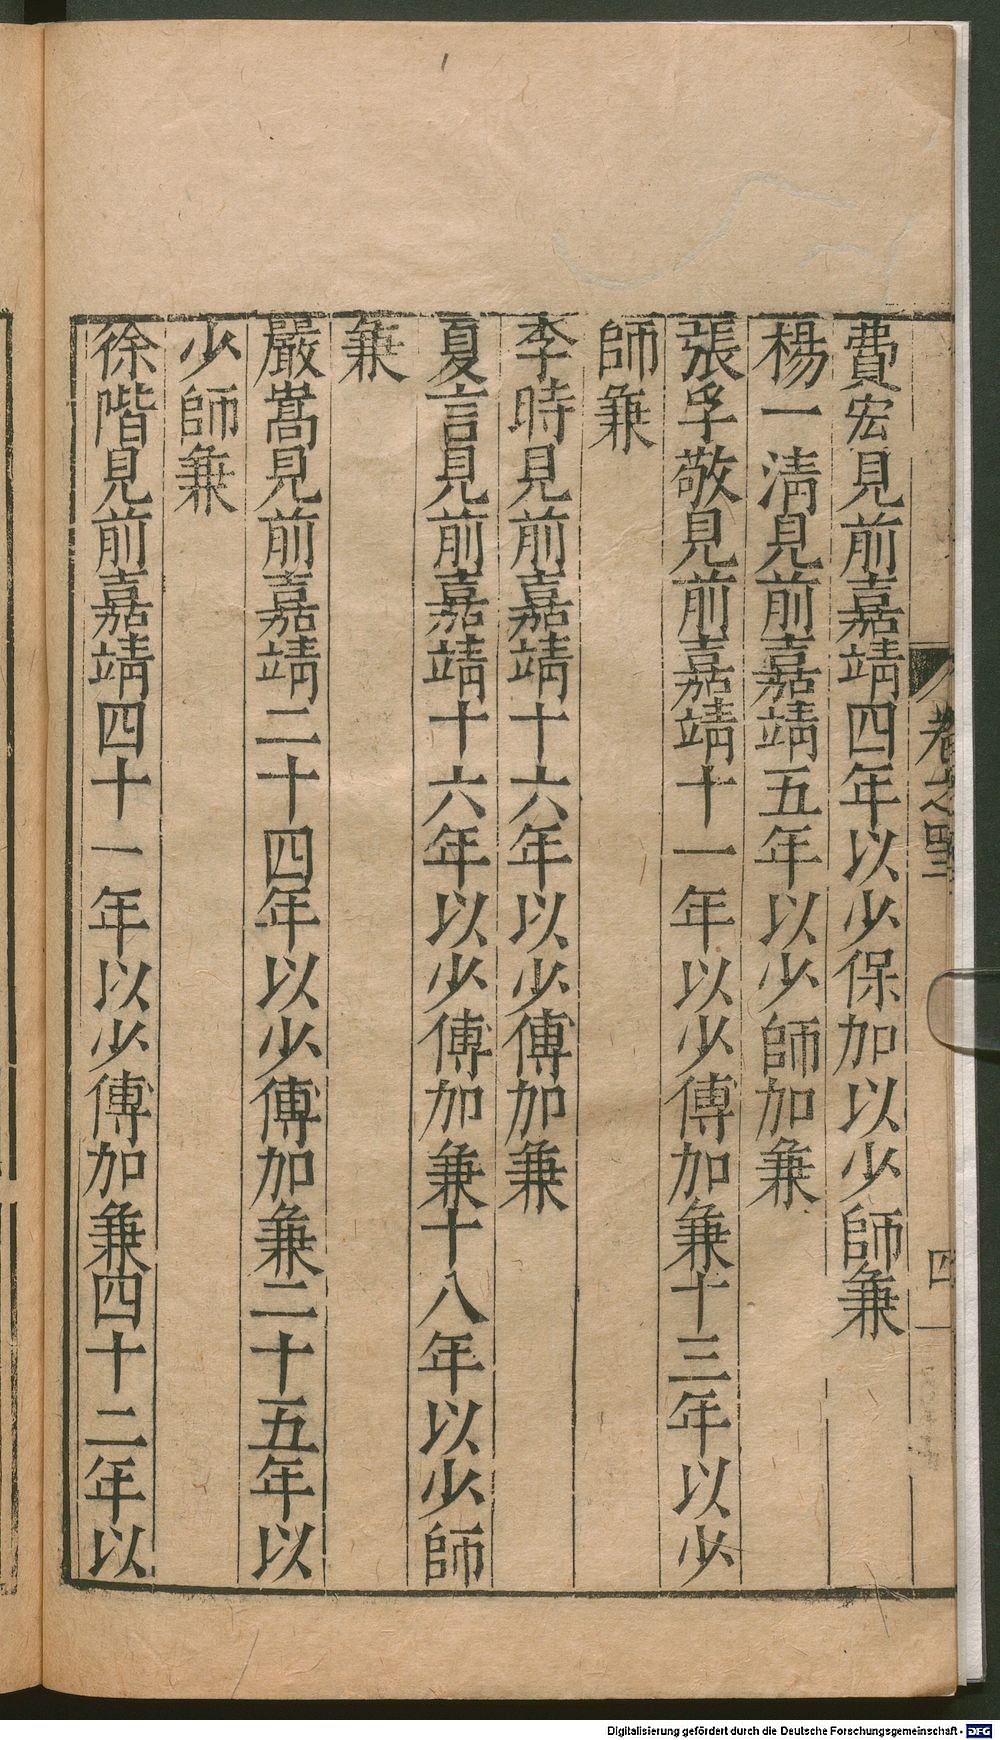 費宏見前嘉靖四年以少保加以少師兼
楊一清見前嘉靖五年以少師加兼
張孚敬見前嘉靖十一年以少傅加兼十三年以少
師兼
李時見前嘉靖十六年以少傅加兼
夏言見前嘉靖十六年以少傅加兼十八年以少師
兼
嚴嵩見前嘉靖二十四年以少傅加兼二十五年以
少師兼
徐階見前嘉靖四十一年以少傅加兼四十二年以
卷之
四
Digitalisierung gefördert durch die Deutsche Forschungsgemeinschaft - DFG